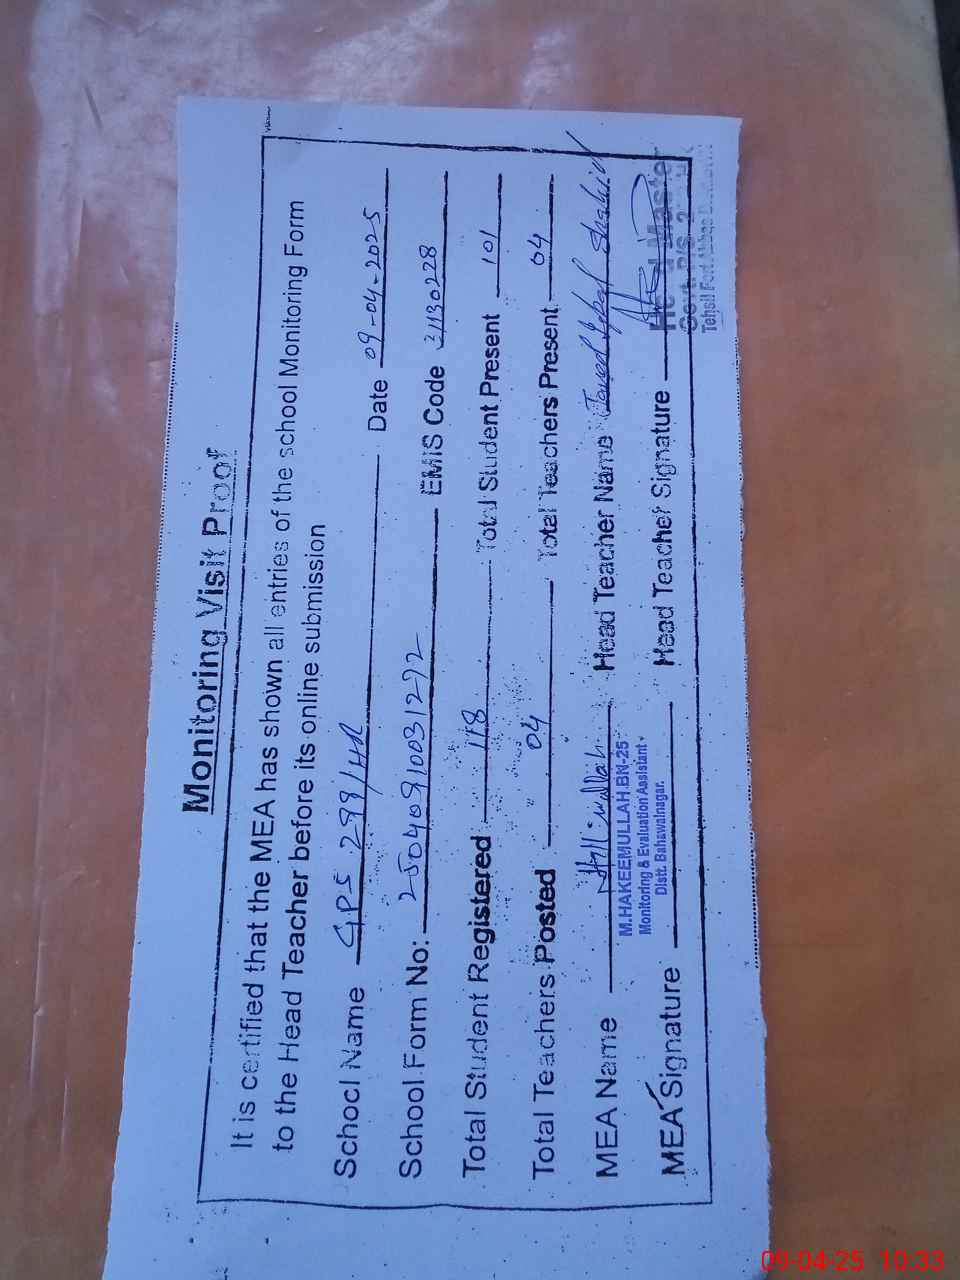 Monitoring Visit Proof
It is certified that the MEA has shown all entries of the school Monitoring Form
to the Head Teacher before its online submission
School Name GPS 299/HR Date 09-04-2025
School Form No: 25040910031272 EMIS Code 31130228
Total Student Registered 118 Total Student Present 101
Total Teachers Posted 04 Total Teachers Present 04
MEA Name Head Teacher Name Javed Iqbal Shaheen
M.HAKEEMULLAH.BN-25
Monitoring & Evaluation Assistant
Distt. Bahawalnagar.
MEA Signature Head Teacher Signature
Head Master
Govt. P/S
Tehsil Fort Abbas
09-04-25 10:33